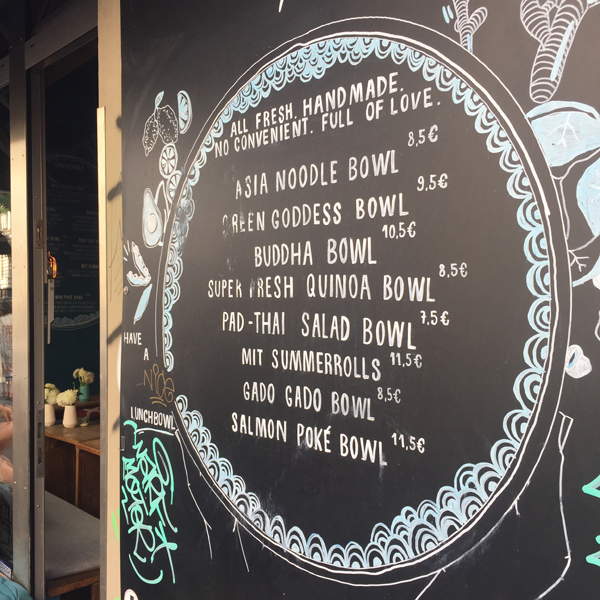 ALL FRESH. HANDMADE.
NO CONVENIENT. FULL OF LOVE.
ASIA NOODLE BOWL 8,5€
GREEN GODDESS BOWL 9,5€
BUDDHA BOWL 10,5€
SUPER FRESH QUINOA BOWL 8,5€
PAD-THAI SALAD BOWL 7,5€
MIT SUMMERROLLS 11,5€
GADO GADO BOWL 8,5€
SALMON POKÉ BOWL 11,5€
HAVE
A
NICE
LUNCHBOWL